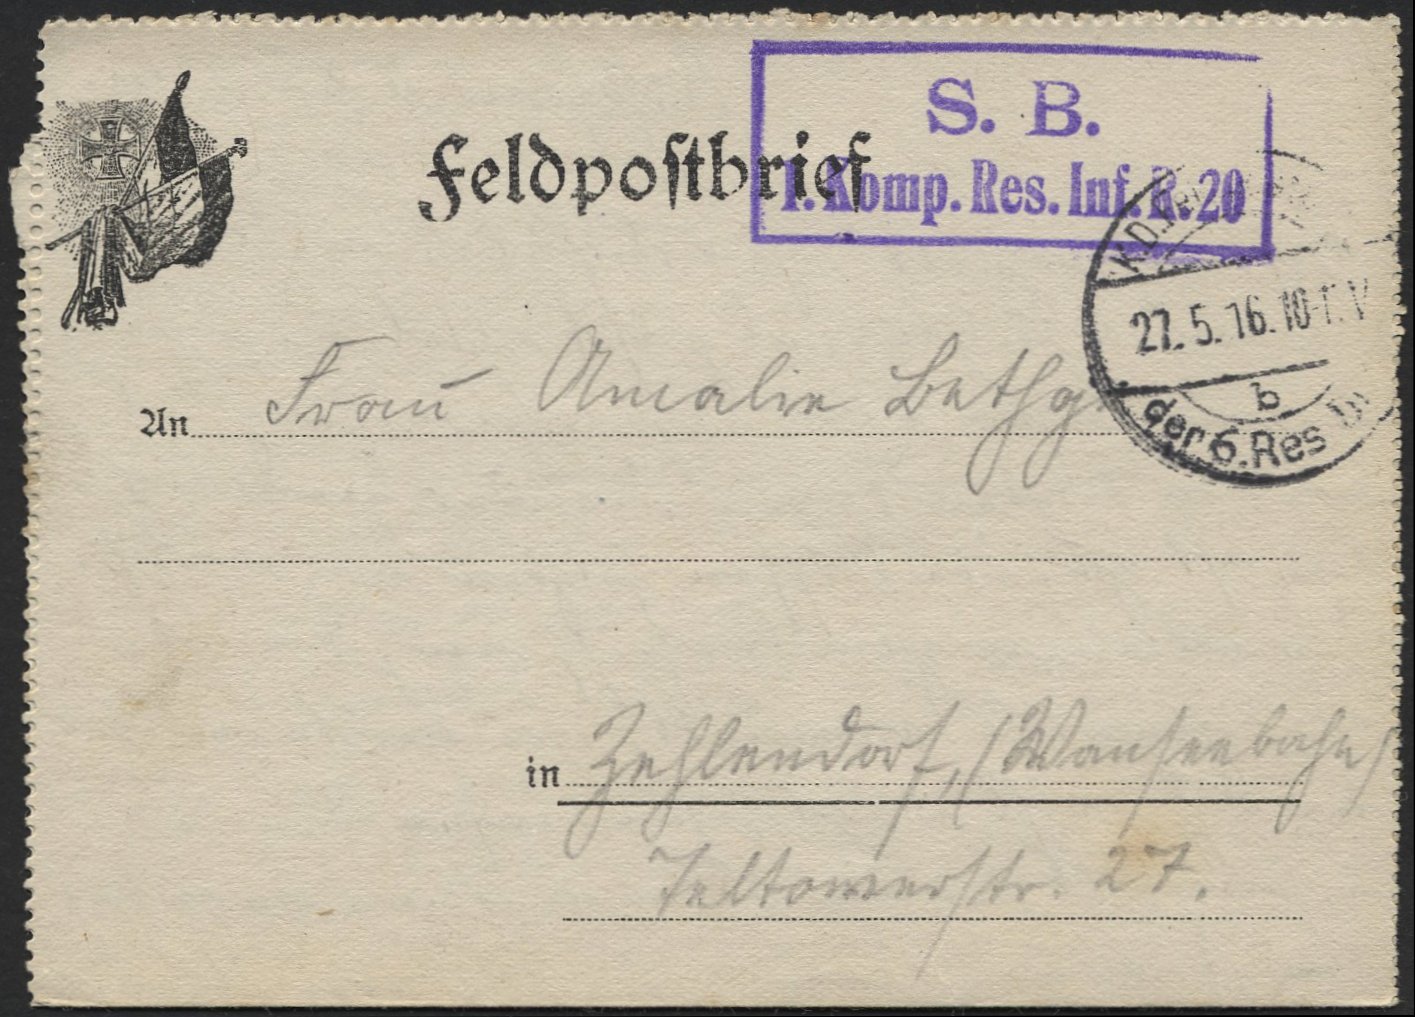 S. B.
Feldpostbrief
1. Komp. Res. Inf. R. 20
K.D.
27.5.16.10-11.V
b
der 6. Res
An Frau Amalie Bethge
in Zehlendorf, (Wanseebahn)
Teltowerstr. 27.